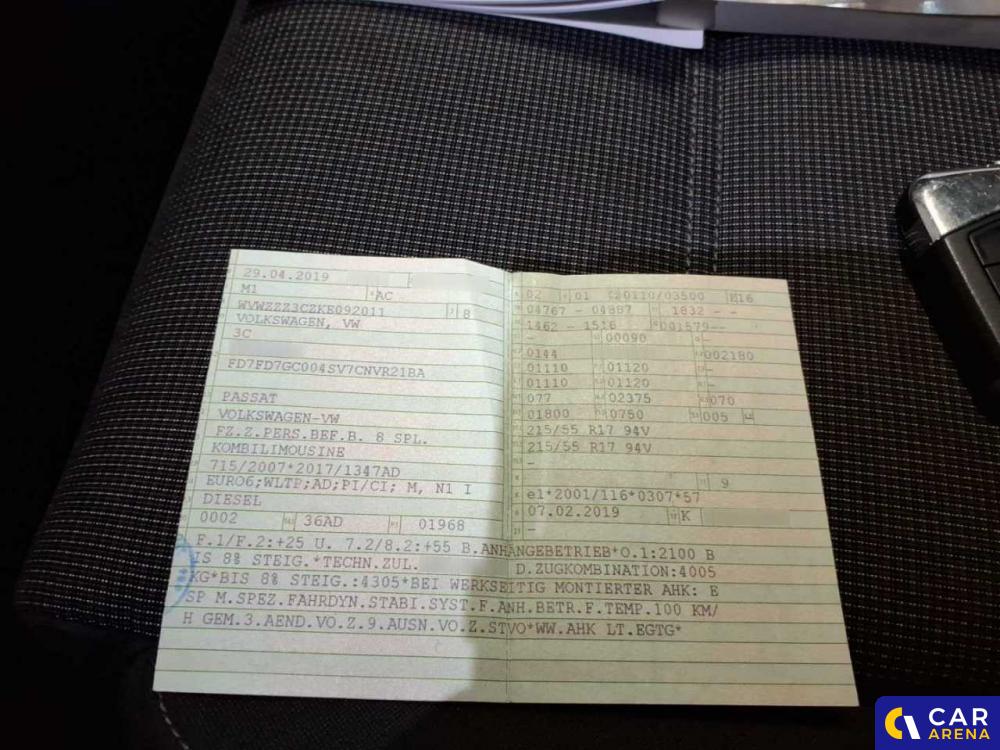 29.04.2019
M1 AC
WVWZZZ3CZKE092011 8
VOLKSWAGEN, VW
3C
FD7FD7GC004SV7CNVR21BA
PASSAT
VOLKSWAGEN-VW
FZ.Z.PERS.BEF.B. 8 SPL.
KOMBILIMOUSINE
715/2007*2017/1347AD
EURO6;WLTP;AD;PI/CI; M, N1 I
DIESEL
0002 36AD 01968
02 01 /03500 M16
04767 - 04887 1832 - -
1462 - 1516 001579--
- 00090 -
0144 002180
01110 01120 -
01110 01120 -
077 02375 070
01800 0750 005
215/55 R17 94V
215/55 R17 94V
-
- 9
e1*2001/116*0307*57
07.02.2019 K
F.1/F.2:+25 U. 7.2/8.2:+55 B.ANHÄNGEBETRIEB*O.1:2100 B
IS 8% STEIG.*TECHN.ZUL. D.ZUGKOMBINATION:4005
KG*BIS 8% STEIG.:4305*BEI WERKSEITIG MONTIERTER AHK: E
SP M.SPEZ.FAHRDYN.STABI.SYST.F.ANH.BETR.F.TEMP.100 KM/
H GEM.3.AEND.VO.Z.9.AUSN.VO.Z.STVO*WW.AHK LT.EGTG*
CAR
ARENA